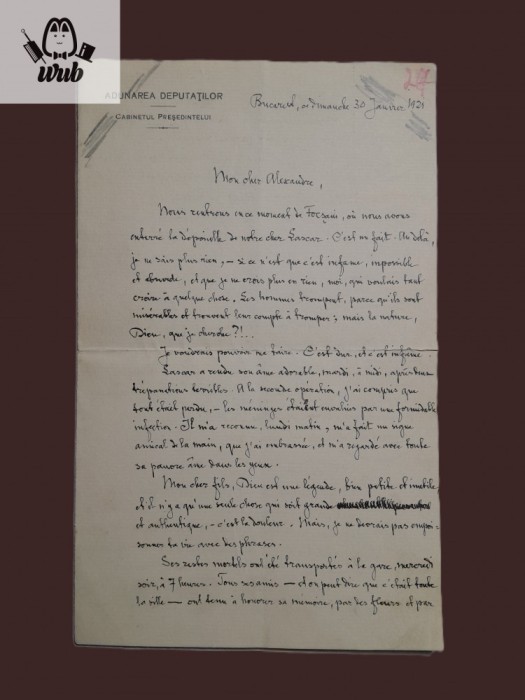 wub
ADUNAREA DEPUTAȚILOR
CABINETUL PREȘEDINTELUI
24
Bucarest, ce dimanche 30 Janvier 1921
Mon cher Alexandre,
Nous rentrons en ce moment de Focșani, où nous avons
enterré la dépouille de notre cher Lascar. C'est un fait. Au delà,
je ne sais plus rien, — si ce n'est que c'est infâme, impossible
et absurde, et que je ne crois plus en rien, moi, qui voulais tant
croire à quelque chose. Les hommes trompent, parce qu'ils sont
misérables et trouvent leur compte à tromper; mais la nature,
Dieu, que je cherche?!..
Je voudrais pouvoir me taire. C'est dur, et c'est infâme.
Lascar a rendu son âme adorable, mardi, à midi, après deux
trépanations terribles. A la seconde opération, j'ai compris que
tout était perdu, — les méninges étaient envahies par une formidable
infection. Il m'a reconnu, lundi matin, m'a fait un signe
amical de la main, que j'ai embrassée, et m'a regardé avec toute
sa pauvre âme dans les yeux.
Mon cher fils, Dieu est une légende, bien petite et inutile
et il n'y a qu'une seule chose qui soit grande
et authentique, — c'est la douleur. Mais, je ne devrais pas empoi-
sonner ta vie avec des phrases.
Ses restes mortels ont été transportés à la gare, mercredi
soir, à 7 heures. Tous ses amis — et on peut dire que c'était toute
la ville — ont tenu à honorer sa mémoire, par des fleurs et par